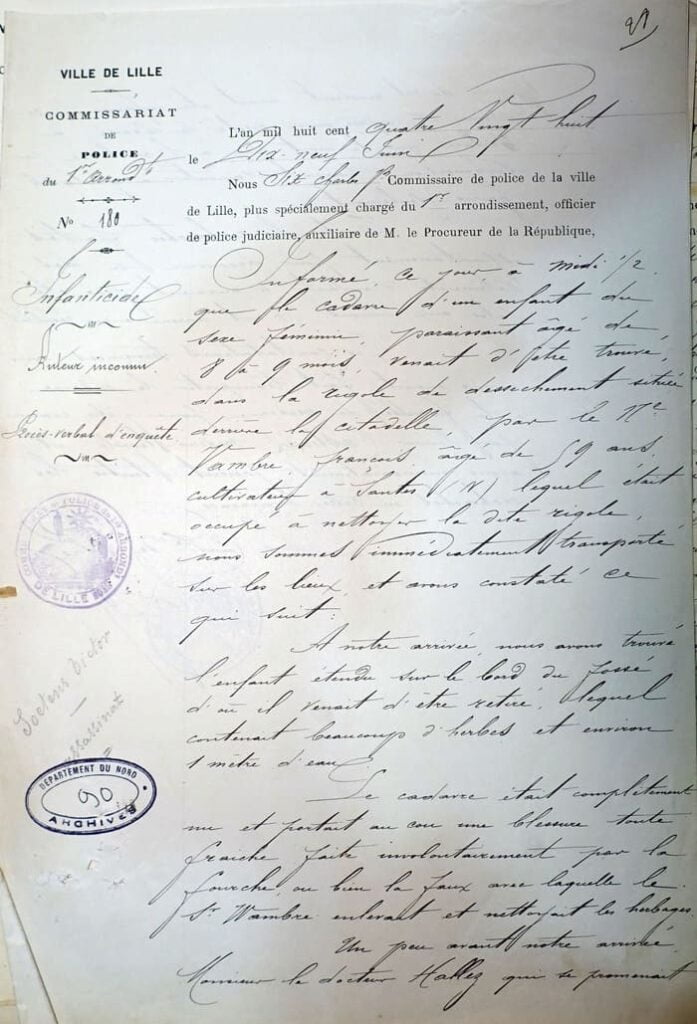 21
VILLE DE LILLE
COMMISSARIAT
DE
POLICE
du 1er arrondt
No 180
Infanticide
Auteur inconnu.
Procès-verbal d'enquête
DE LILLE
DEPARTEMENT DU NORD
90
ARCHIVES
L'an mil huit cent quatre Vingt huit
le Dix-neuf Juin
Nous Six Charles Commissaire de police de la ville
de Lille, plus spécialement chargé du 1er arrondissement, officier
de police judiciaire, auxiliaire de M. le Procureur de la République,
Informé, ce jour, à midi 1/2
que le cadavre d'un enfant du
sexe féminin, paraissant âgé de
8 à 9 mois, venait d'être trouvé,
dans la rigole de dessèchement située
derrière la citadelle, par le Né
Wambre, françois, âgé de 59 ans,
cultivateur à Santes (N) lequel était
occupé à nettoyer la dite rigole,
nous sommes immédiatement transporté
sur les lieux et avons constaté ce
qui suit:
A notre arrivée, nous avons trouvé
l'enfant étendu sur le bord du fossé
d'où il venait d'être retiré, lequel
contenait beaucoup d'herbes et environ
1 mètre d'eau.
Le cadavre était complètement
nu et portait au cou une blessure toute
fraiche faite involontairement par la
fourche ou bien la faux avec laquelle le
Sr Wambre enlevait et nettoyait les herbages
Un peu avant notre arrivée,
Monsieur le docteur Hallez qui se promenait